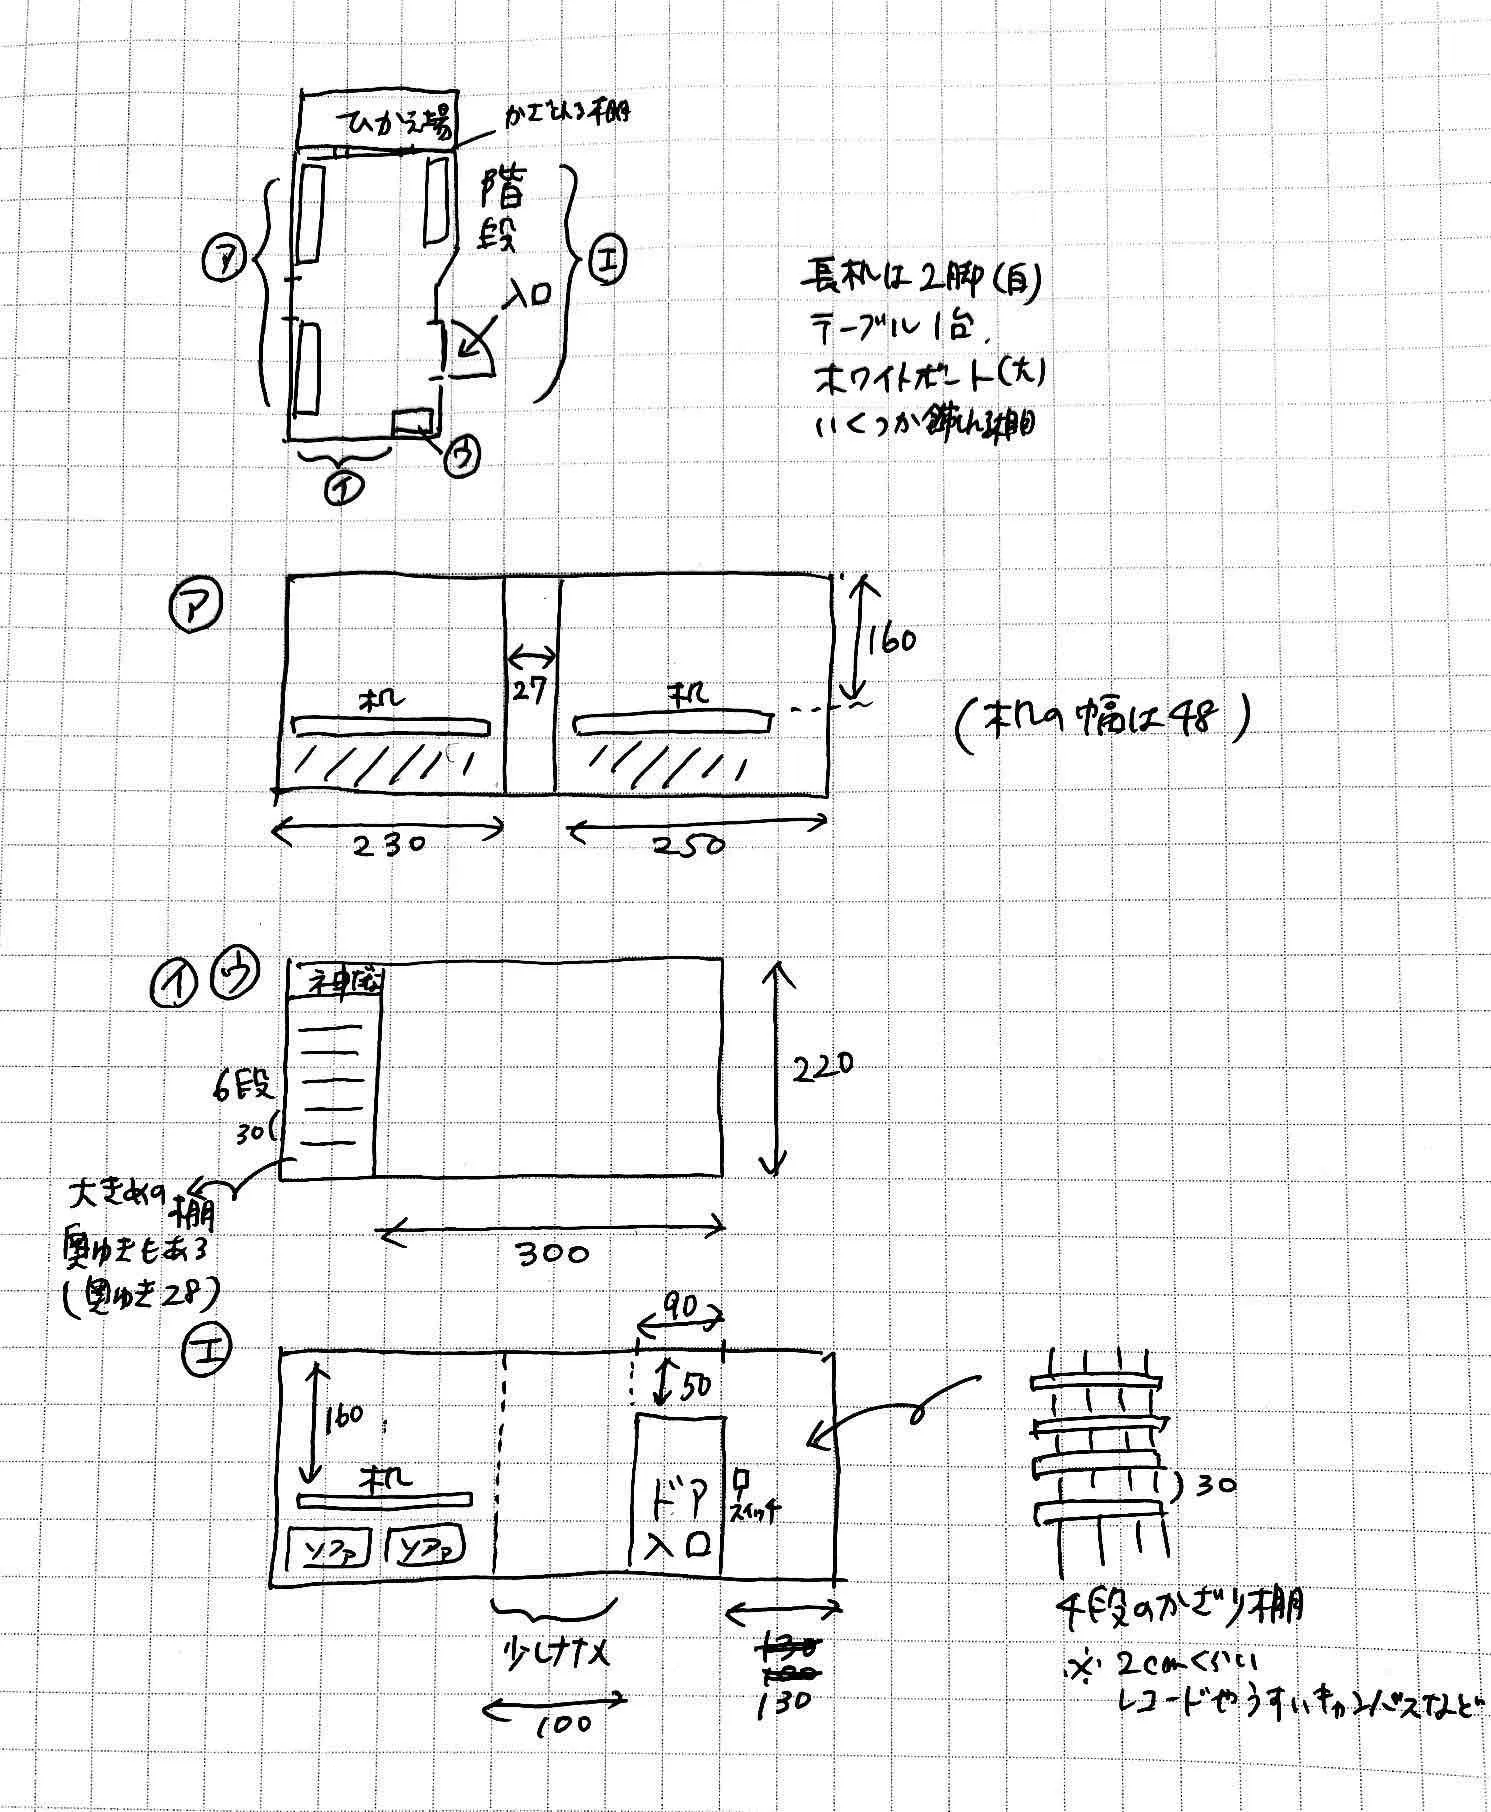 ひかえ場
かざれる棚
階
段
入口
㋐
㋓
㋒
㋑
長机は2脚(白)
テーブル1台.
ホワイトボード(大)
いくつか飾れる棚
㋐
160
机
27
机
(机の幅は48)
230
250
㋑㋒
神だな
6段
30
220
大きめの棚
奥ゆきもある
(奥ゆき28)
300
㋓
90
50
160
机
ドア
入口
スイッチ
ソファ
ソファ
少しナナメ
100
130
30
4段のかざり棚
※ 2cmくらい
レコードやうすいキャンバスなど